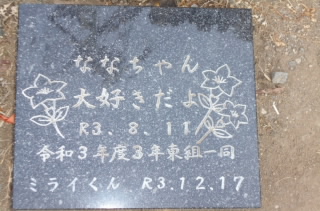 ななちゃん
大好きだよ
R3、8、11
令和3年度3年東組一同
ミライくん R3.12.17